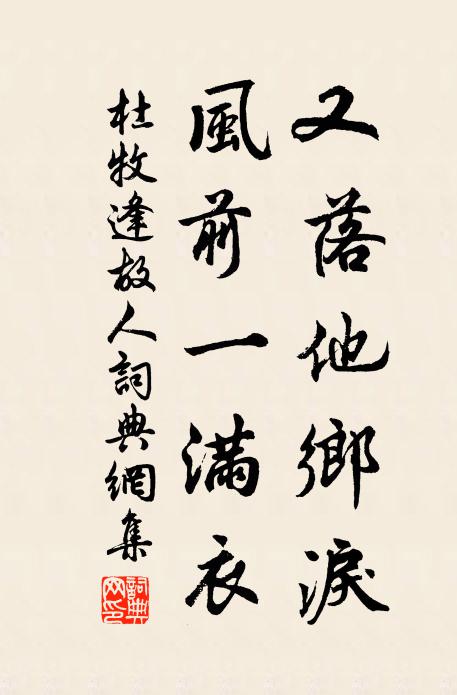 又落他鄉淚
風前一滿衣
杜牧逢故人詞典網集
詞典
网印